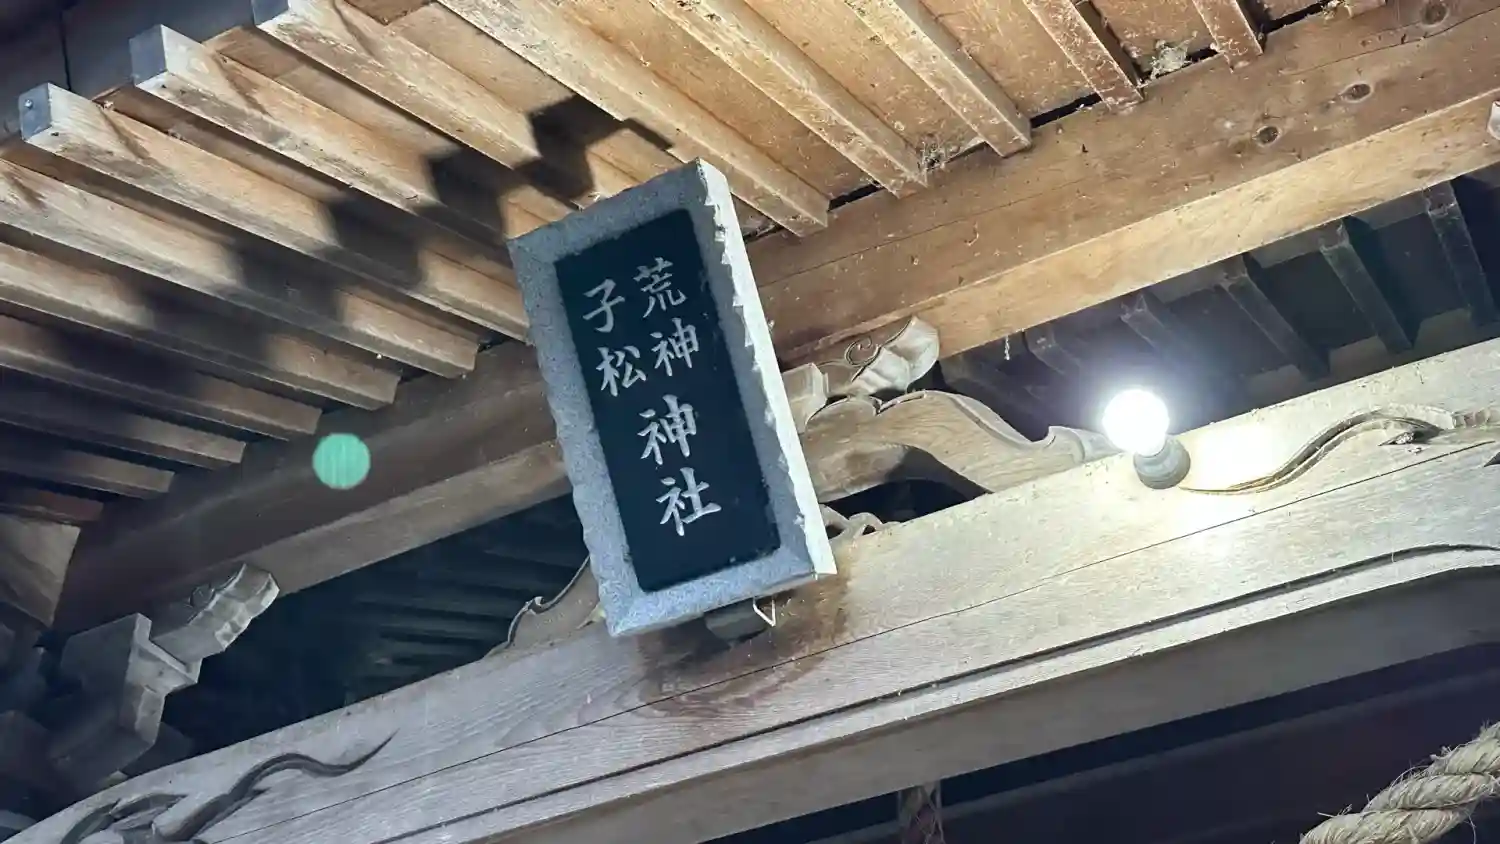 荒神
子松
神社